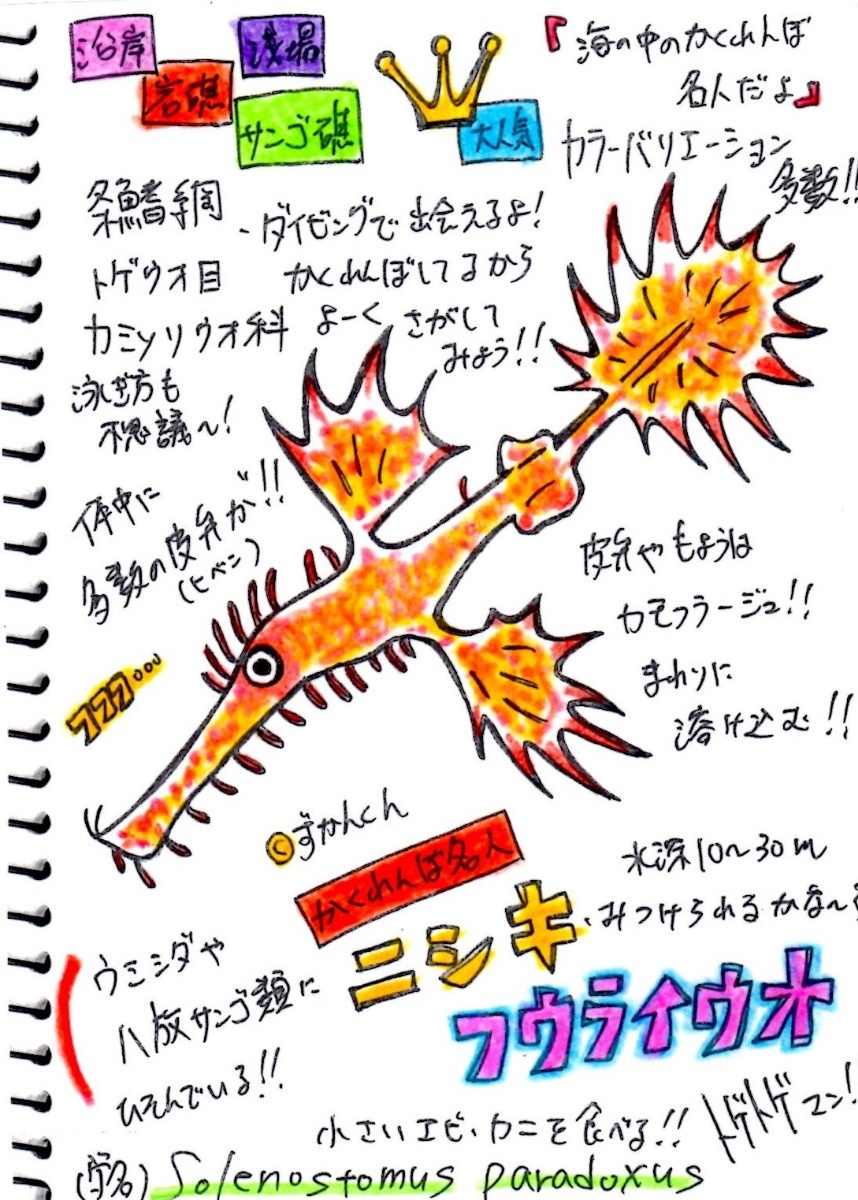 沿岸
浅場
岩礁
サンゴ礁
大人気
『海の中のかくれんぼ
名人だよ』
カラーバリエーション
多数!!
条鰭綱
トゲウオ目
カミソリウオ科
・ダイビングで出会えるよ!
かくれんぼしてるから
よーくさがして
みよう!!
泳ぎ方も
不思議〜!
体中に
多数の皮弁が!!
(ヒベン)
フフフ...
皮弁やもようは
カモフラージュ!!
まわりに
溶け込む!!
©ずかんくん
かくれんぼ名人
ニシキ
フウライウオ
水深10〜30m
みつけられるかな〜
ウミシダや
八放サンゴ類に
ひそんでいる!!
小さいエビ、カニを食べる!!
トゲトゲマン!
(学名) Solenostomus paradoxus